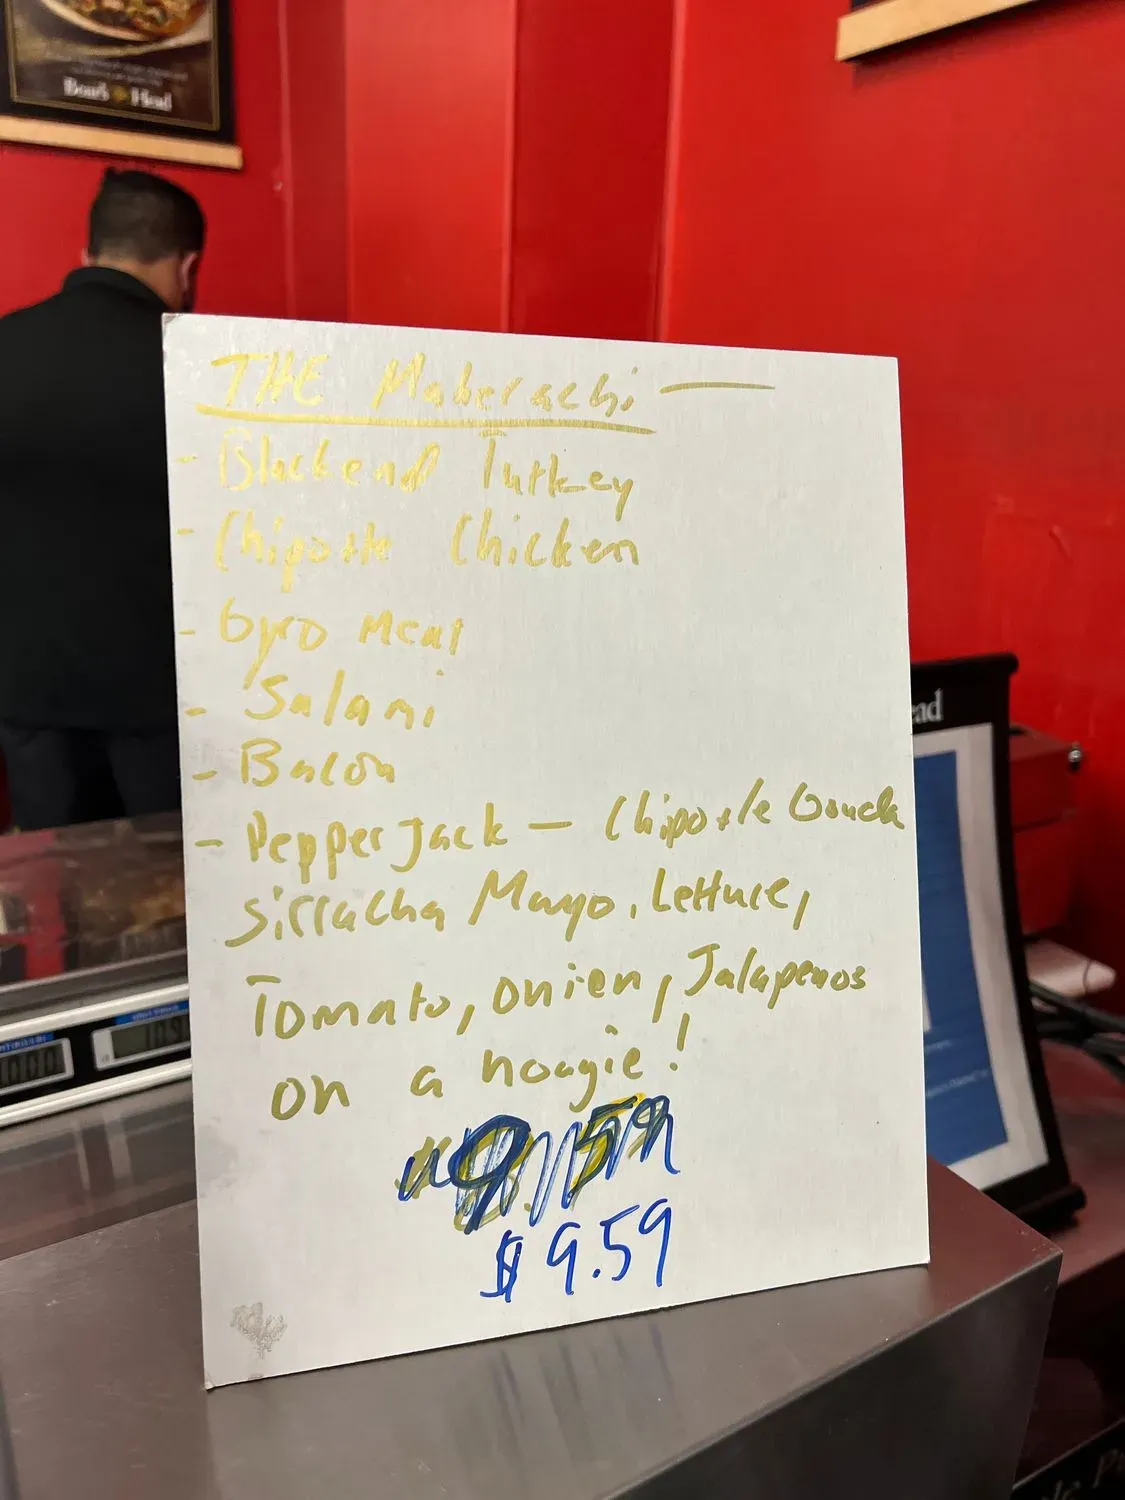 Boar's Head
THE Maherachi —
- Blackend Turkey
- Chipotle Chicken
- Gyro Meat
- Salami
- Bacon
- Pepper Jack — Chipotle Gouda
Sirracha Mayo, Lettuce,
Tomato, onien, Jalapenos
on a hoagie!
9.59
$9.59
ead